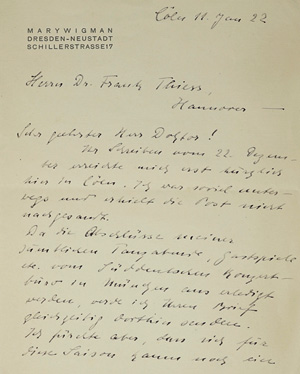 MARY WIGMAN
DRESDEN-NEUSTADT
SCHILLERSTRASSE 17
Cöln 11. Jan 22
Herrn Dr. Frank Thiess,
Hannover —
Sehr geehrter Herr Doktor!
Ihr Schreiben vom 22. Dezem-
ber erreichte mich erst kürzlich
hier in Cöln. Ich war soviel unter-
wegs und erhielt die Post nicht
nachgesandt.
Da die Abschlüsse meiner
sämtlichen Tanzabende, Gastspiele
etc. vom Süddeutschen Konzert-
büro in München aus erledigt
werden, werde ich Ihren Brief
gleichzeitig dorthin senden.
Ich fürchte aber, dass sich für
diese Saison kaum noch ein